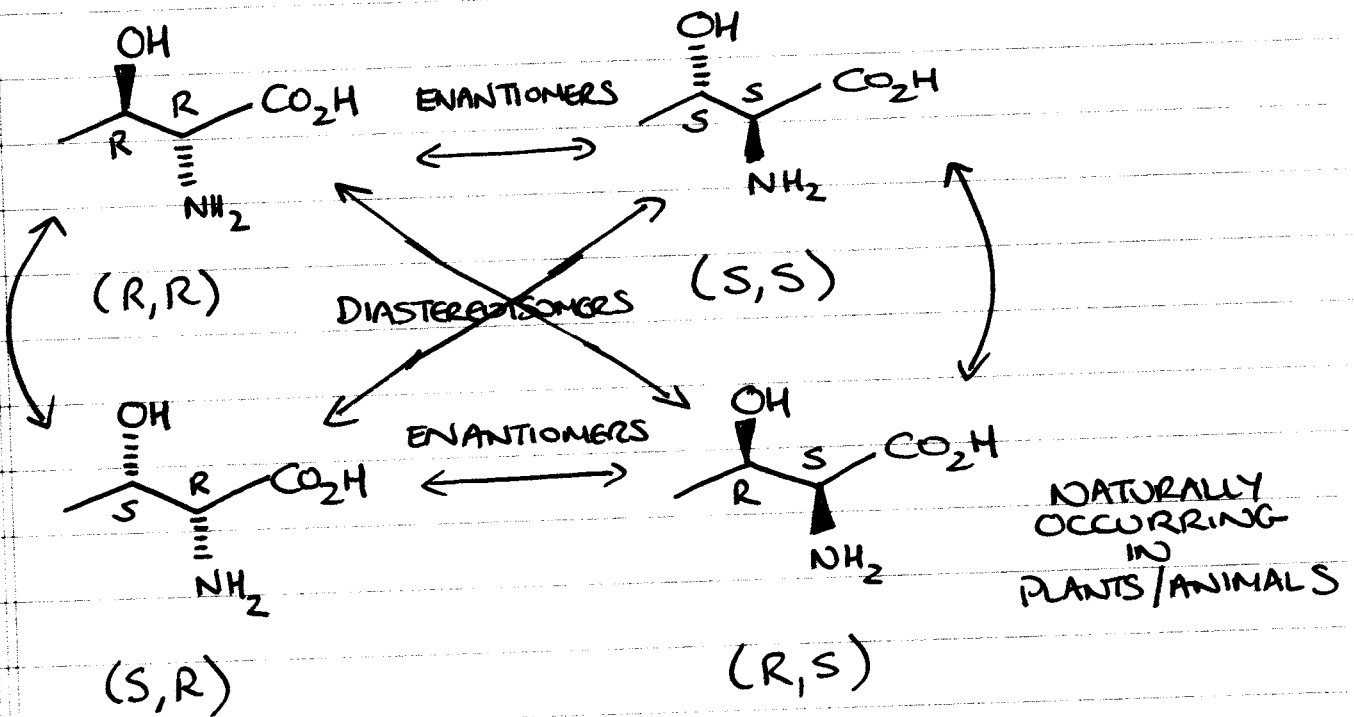 OH
R
R
CO₂H
NH₂
(R,R)
ENANTIOMERS
OH
S
S
CO₂H
NH₂
(S,S)
DIASTEREOISOMERS
OH
S
R
CO₂H
NH₂
(S,R)
ENANTIOMERS
OH
R
S
CO₂H
NH₂
(R,S)
NATURALLY
OCCURRING
IN
PLANTS/ANIMALS